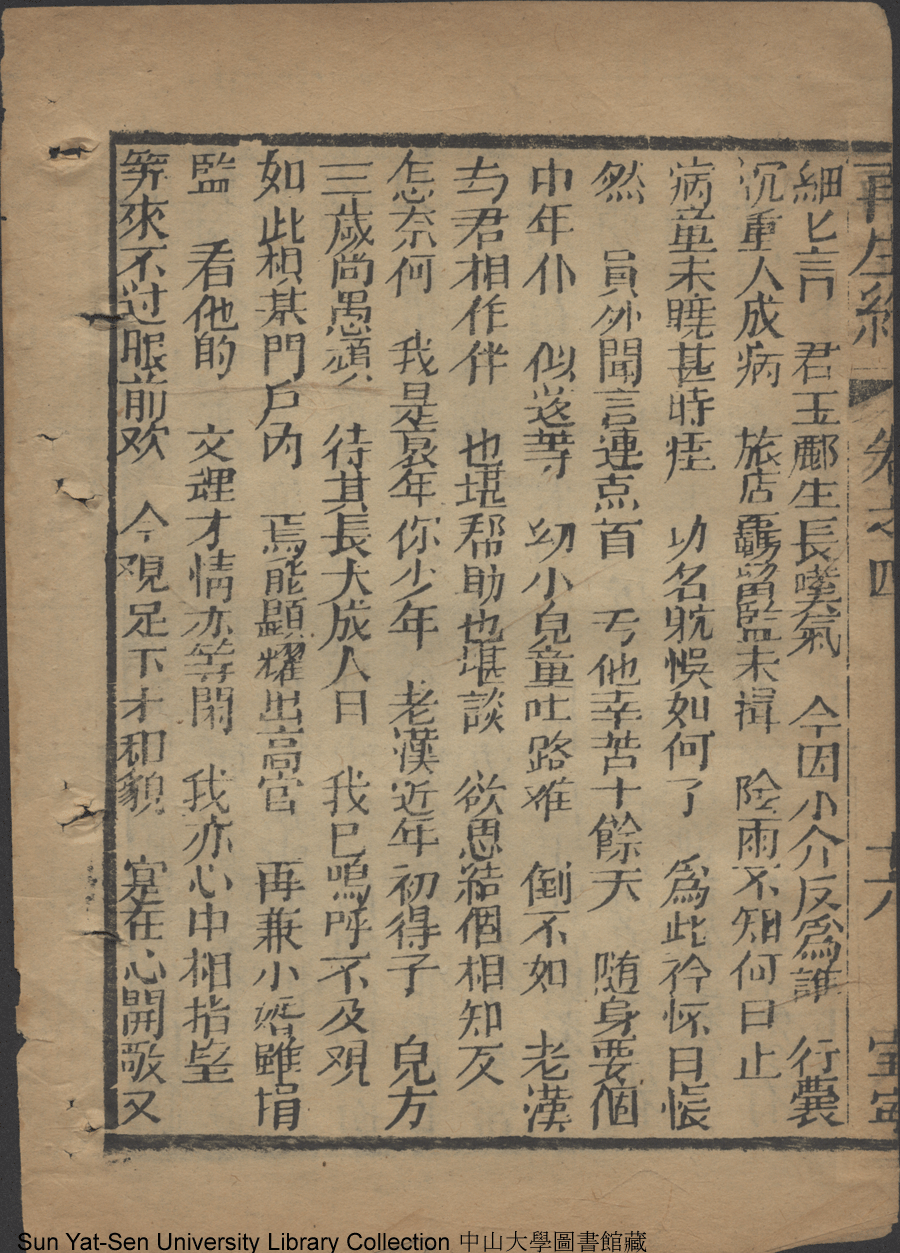 再生緣 卷之四 十六
細匕言 君玉酈生長嘆氣 今因小介反為誰 行囊
沉重人成病 旅店羈留監未揖 陰雨不知何日止
病童未曉甚時痊 功名躭悞如何了 為此衿怀日悵
然 員外聞言連点首 亐他幸苦十餘天 随身要個
中年仆 似这等 幼小皃童吐路难 倒不如 老漢
与君相作伴 也堪帮助也堪談 欲思結個相知友
怎奈何 我是衰年你少年 老漢近年初得子 皃方
三歲尚愚頑 待其長大成人日 我已嗚呼不及观
如此椇某門戶內 焉能顯耀出高官 再兼小婿雖捐
監 看他的 文理才情亦等閑 我亦心中相指望
筭來不过眼前欢 今观足下才和貌 寔在心開敬又
Sun Yat-Sen University Library Collection 中山大學圖書館藏